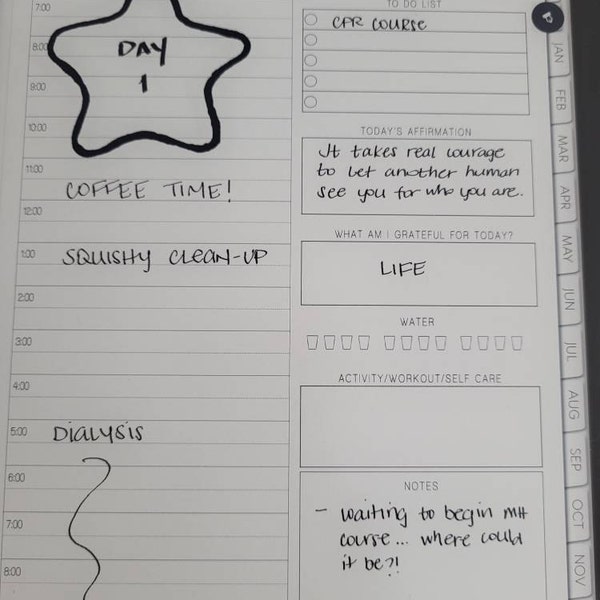 7:00
8:00
DAY
1
9:00
10:00
11:00
COFFEE TIME!
12:00
1:00
SQUISHY CLEAN-UP
2:00
3:00
4:00
5:00
DIALYSIS
6:00
7:00
8:00
TO DO LIST
CPR COURSE
TODAY'S AFFIRMATION
It takes real courage
to let another human
see you for who you are.
WHAT AM I GRATEFUL FOR TODAY?
LIFE
WATER
ACTIVITY/WORKOUT/SELF CARE
NOTES
- waiting to begin MH
course... where could
it be?!
JAN
FEB
MAR
APR
MAY
JUN
JUL
AUG
SEP
OCT
NOV